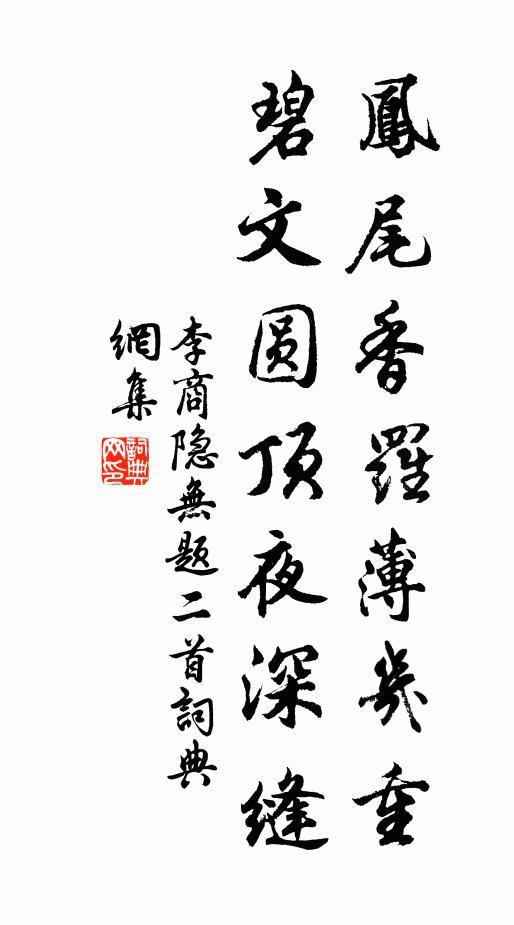 鳳尾香羅薄幾重
碧文圆頂夜深縫
李商隐無題二首詞典
網集
詞典
网印